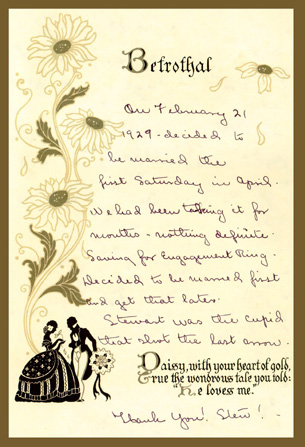 Betrothal
On February 21
1929 - decided to
be married the
first Saturday in April.
We had been talking it for
months - nothing definite.
Saving for Engagement Ring.
Decided to be married first
and get that later.
Stewart was the cupid
that shot the last arrow.
Daisy, with your heart of gold,
True the wondrous tale you told:
"He loves me."
Thank You! Stew! -